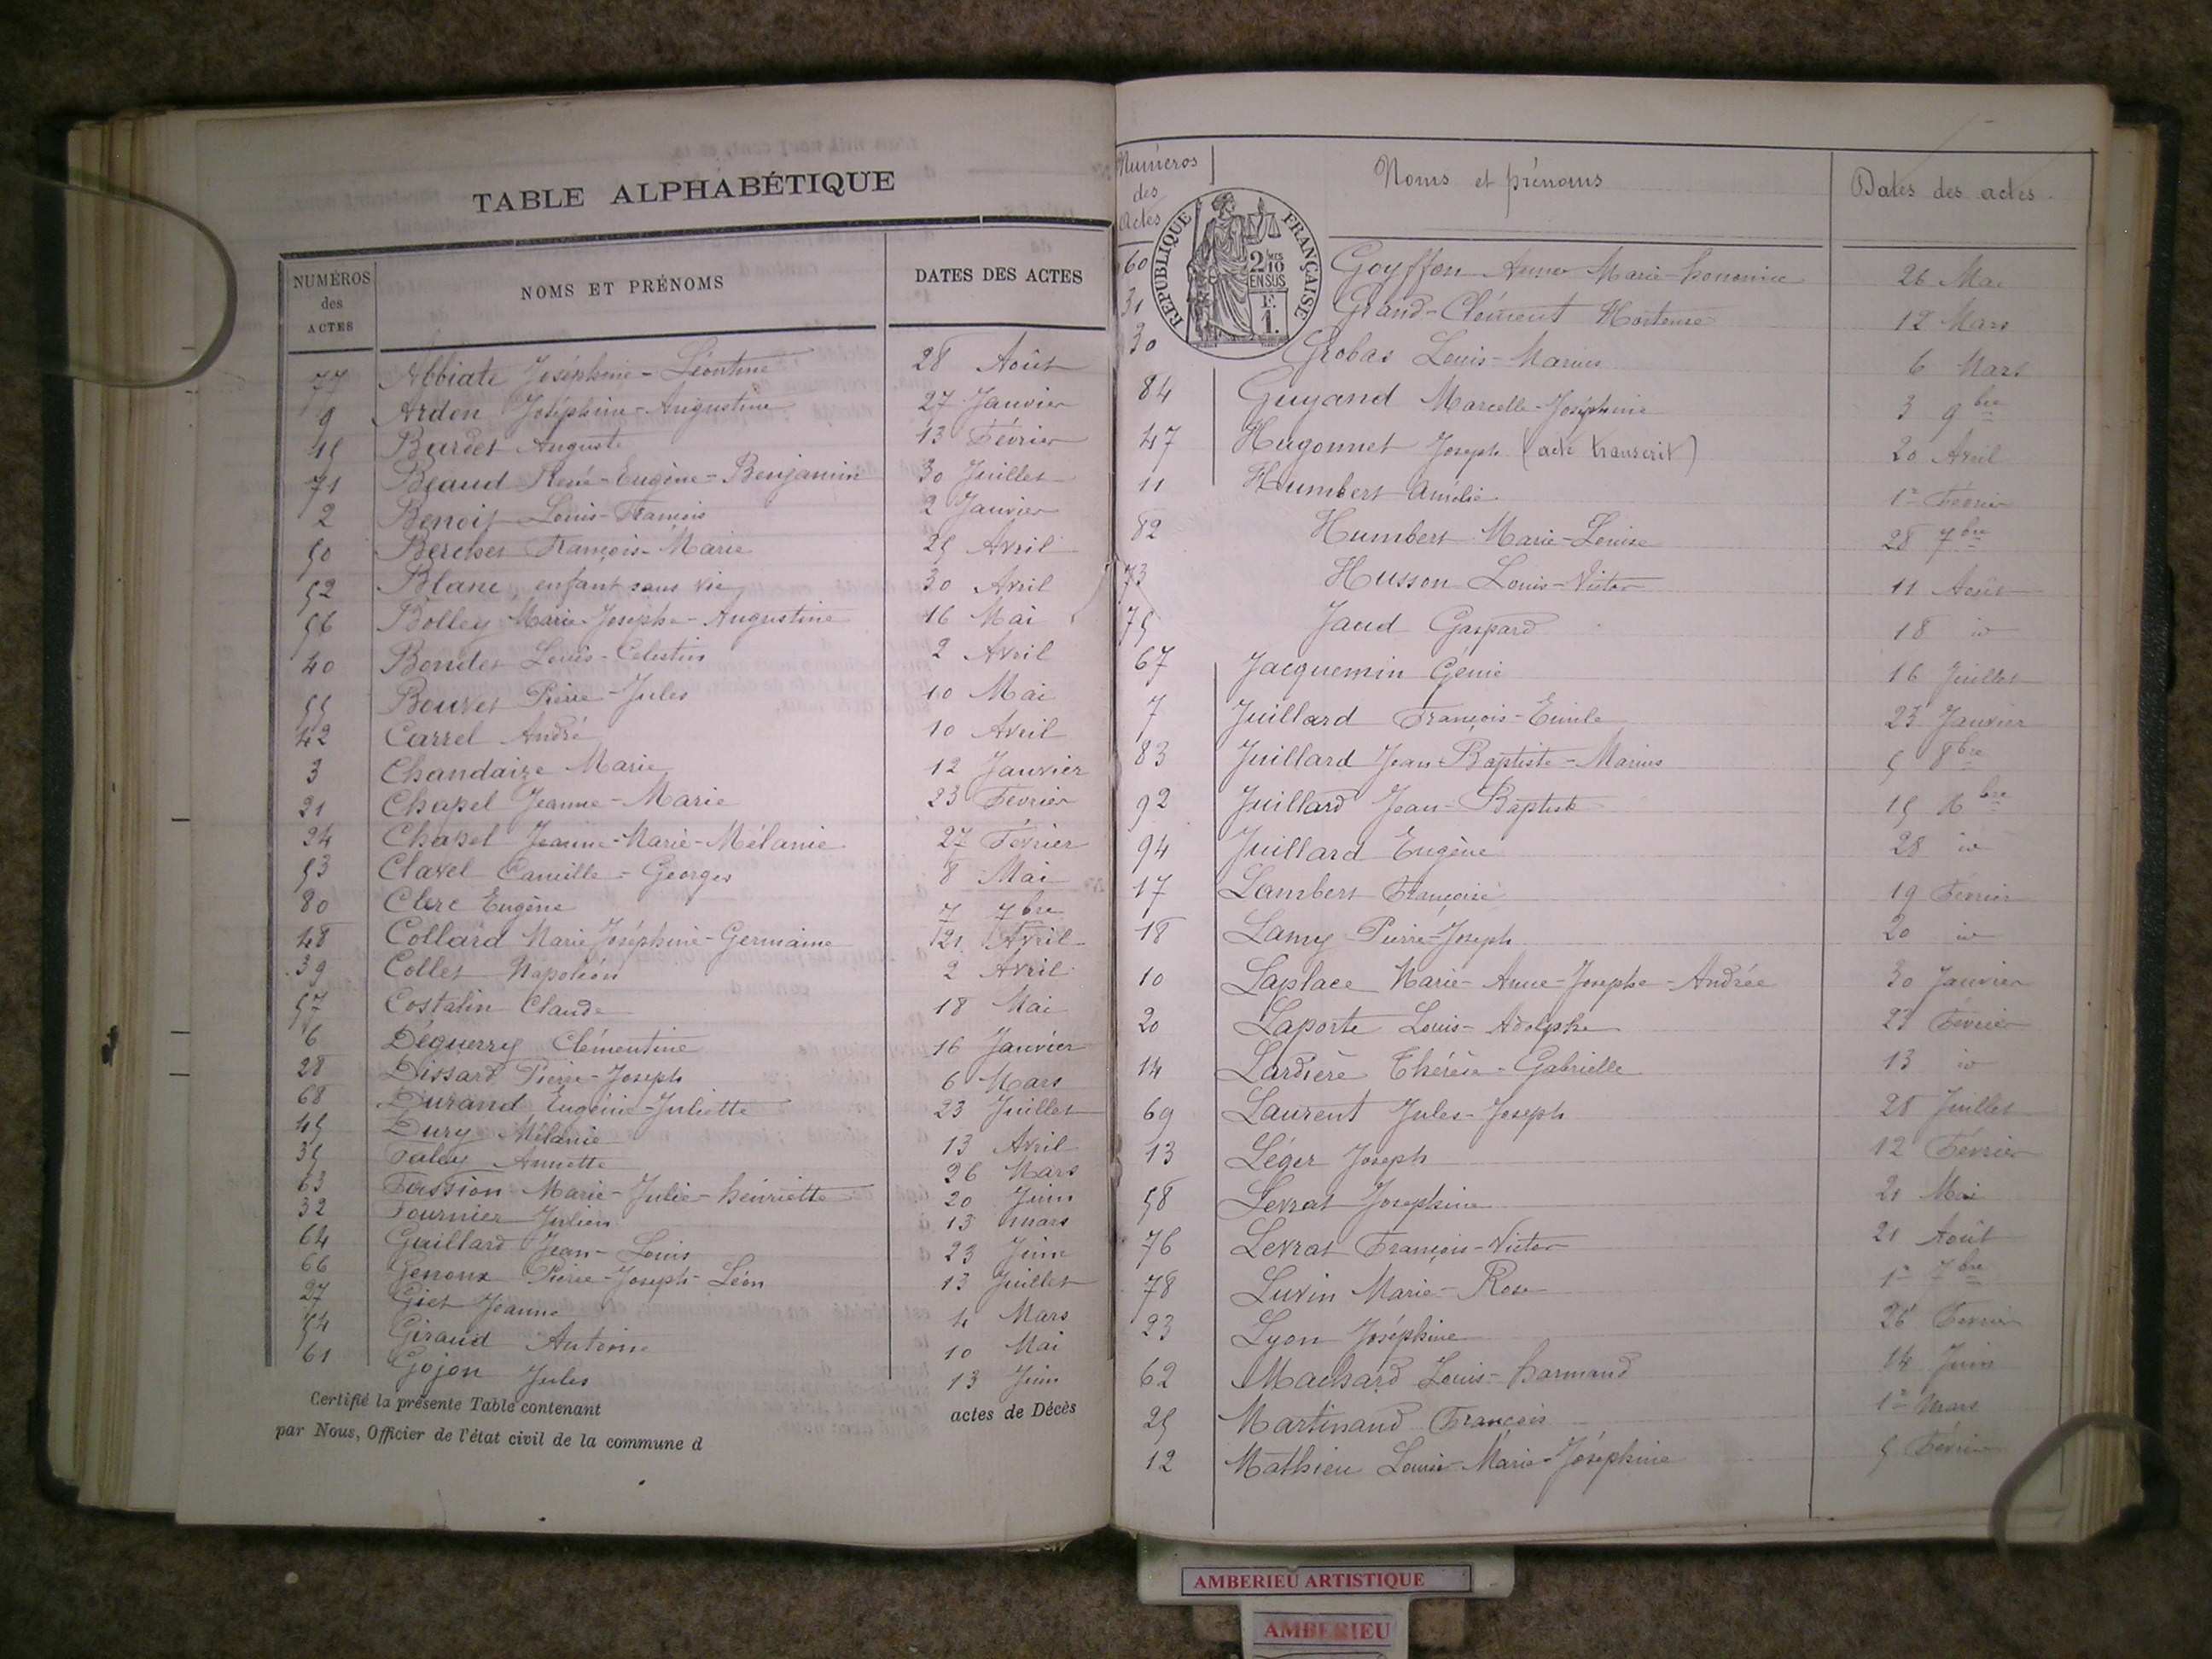 TABLE ALPHABÉTIQUE
NUMÉROS des ACTES NOMS ET PRÉNOMS DATES DES ACTES
77 Abbiate Joséphine-Léontine 28 Août
9 Ardon Joséphine-Augustine 27 Janvier
15 Bardet Auguste 13 Février
71 Béaud René-Eugène-Benjamin 30 Juillet
2 Benoit Louis-François 2 Janvier
50 Berchet François-Marie 25 Avril
52 Blanc, enfant sans vie 30 Avril
56 Bolley Marie-Josephe-Augustine 16 Mai
40 Bondet Louis-Celestin 2 Avril
55 Bouvet Pierre-Jules 10 Mai
42 Carrel André 10 Avril
3 Chandaize Marie 12 Janvier
21 Chapel Jeanne-Marie 23 Février
24 Chapel Jeanne-Marie-Mélanie 27 Février
53 Clavel Camille-Georges 8 Mai
80 Clerc Eugène 7 7bre
48 Collard Marie Joséphine-Germaine 21 Avril
39 Collet Napoléon 2 Avril
57 Costalin Claude 18 Mai
6 Déguerry Clémentine 16 Janvier
28 Dissard Pierre-Joseph 6 Mars
68 Durand Eugénie-Juliette 23 Juillet
45 Dury Mélanie 13 Avril
35 Falay Annette 26 Mars
63 Marie-Julie-henriette 20 Juin
32 Fournier Julien 13 mars
64 Gaillard Jean-Louis 23 Juin
66 Genoux Pierre-Joseph-Léon 13 Juillet
27 Giet Jeanne 4 Mars
54 Giraud Antoine 10 Mai
61 Gojon Jules 13 Juin
Certifié la présente Table contenant actes de Décès
par Nous, Officier de l'état civil de la commune d
Numéros des Actes Noms et prénoms Dates des actes
RÉPUBLIQUE FRANÇAISE
2 MES 10 EN SUS
F. 1.
60 Goyffon Anne Marie 26 Mai
31 Grand-Clément Hortense 12 Mars
30 Grobas Louis-Marius 6 Mars
84 Guyand Marcelle-Joséphine 3 9bre
47 Hugonnet Joseph (acte transcrit) 20 Avril
11 Humbert Amélie 1er Février
82 Humbert Marie-Louise 28 7bre
73 Husson Louis-Victor 11 Août
75 Jaud Gaspard 18 id
67 Jacquemin Génie 16 Juillet
7 Juillard François-Emile 23 Janvier
83 Juillard Jean Baptiste-Marius 5 8bre
92 Juillard Jean-Baptiste 15 Xbre
94 Juillard Eugène 28 id
17 Lambert Françoise 19 Février
18 Lamy Pierre-Joseph 20 id
10 Laplace Marie-Anne-Josephe-Andrée 30 Janvier
20 Laporte Louis-Adolphe 23 Février
14 Lardière Thérèse-Gabrielle 13 id
69 Laurent Jules-Joseph 28 Juillet
13 Léger Joseph 12 Février
58 Levrat Josephine 21 Mai
76 Levrat François-Victor 21 Août
78 Luvin Marie-Rose 1er 7bre
23 Lyon Joséphine 26 Février
62 Machard Louis-harmand 14 Juin
25 Martinaud François 1er Mars
12 Mathieu Louise-Marie-Joséphine 5 Février
AMBERIEU ARTISTIQUE
AMBERIEU